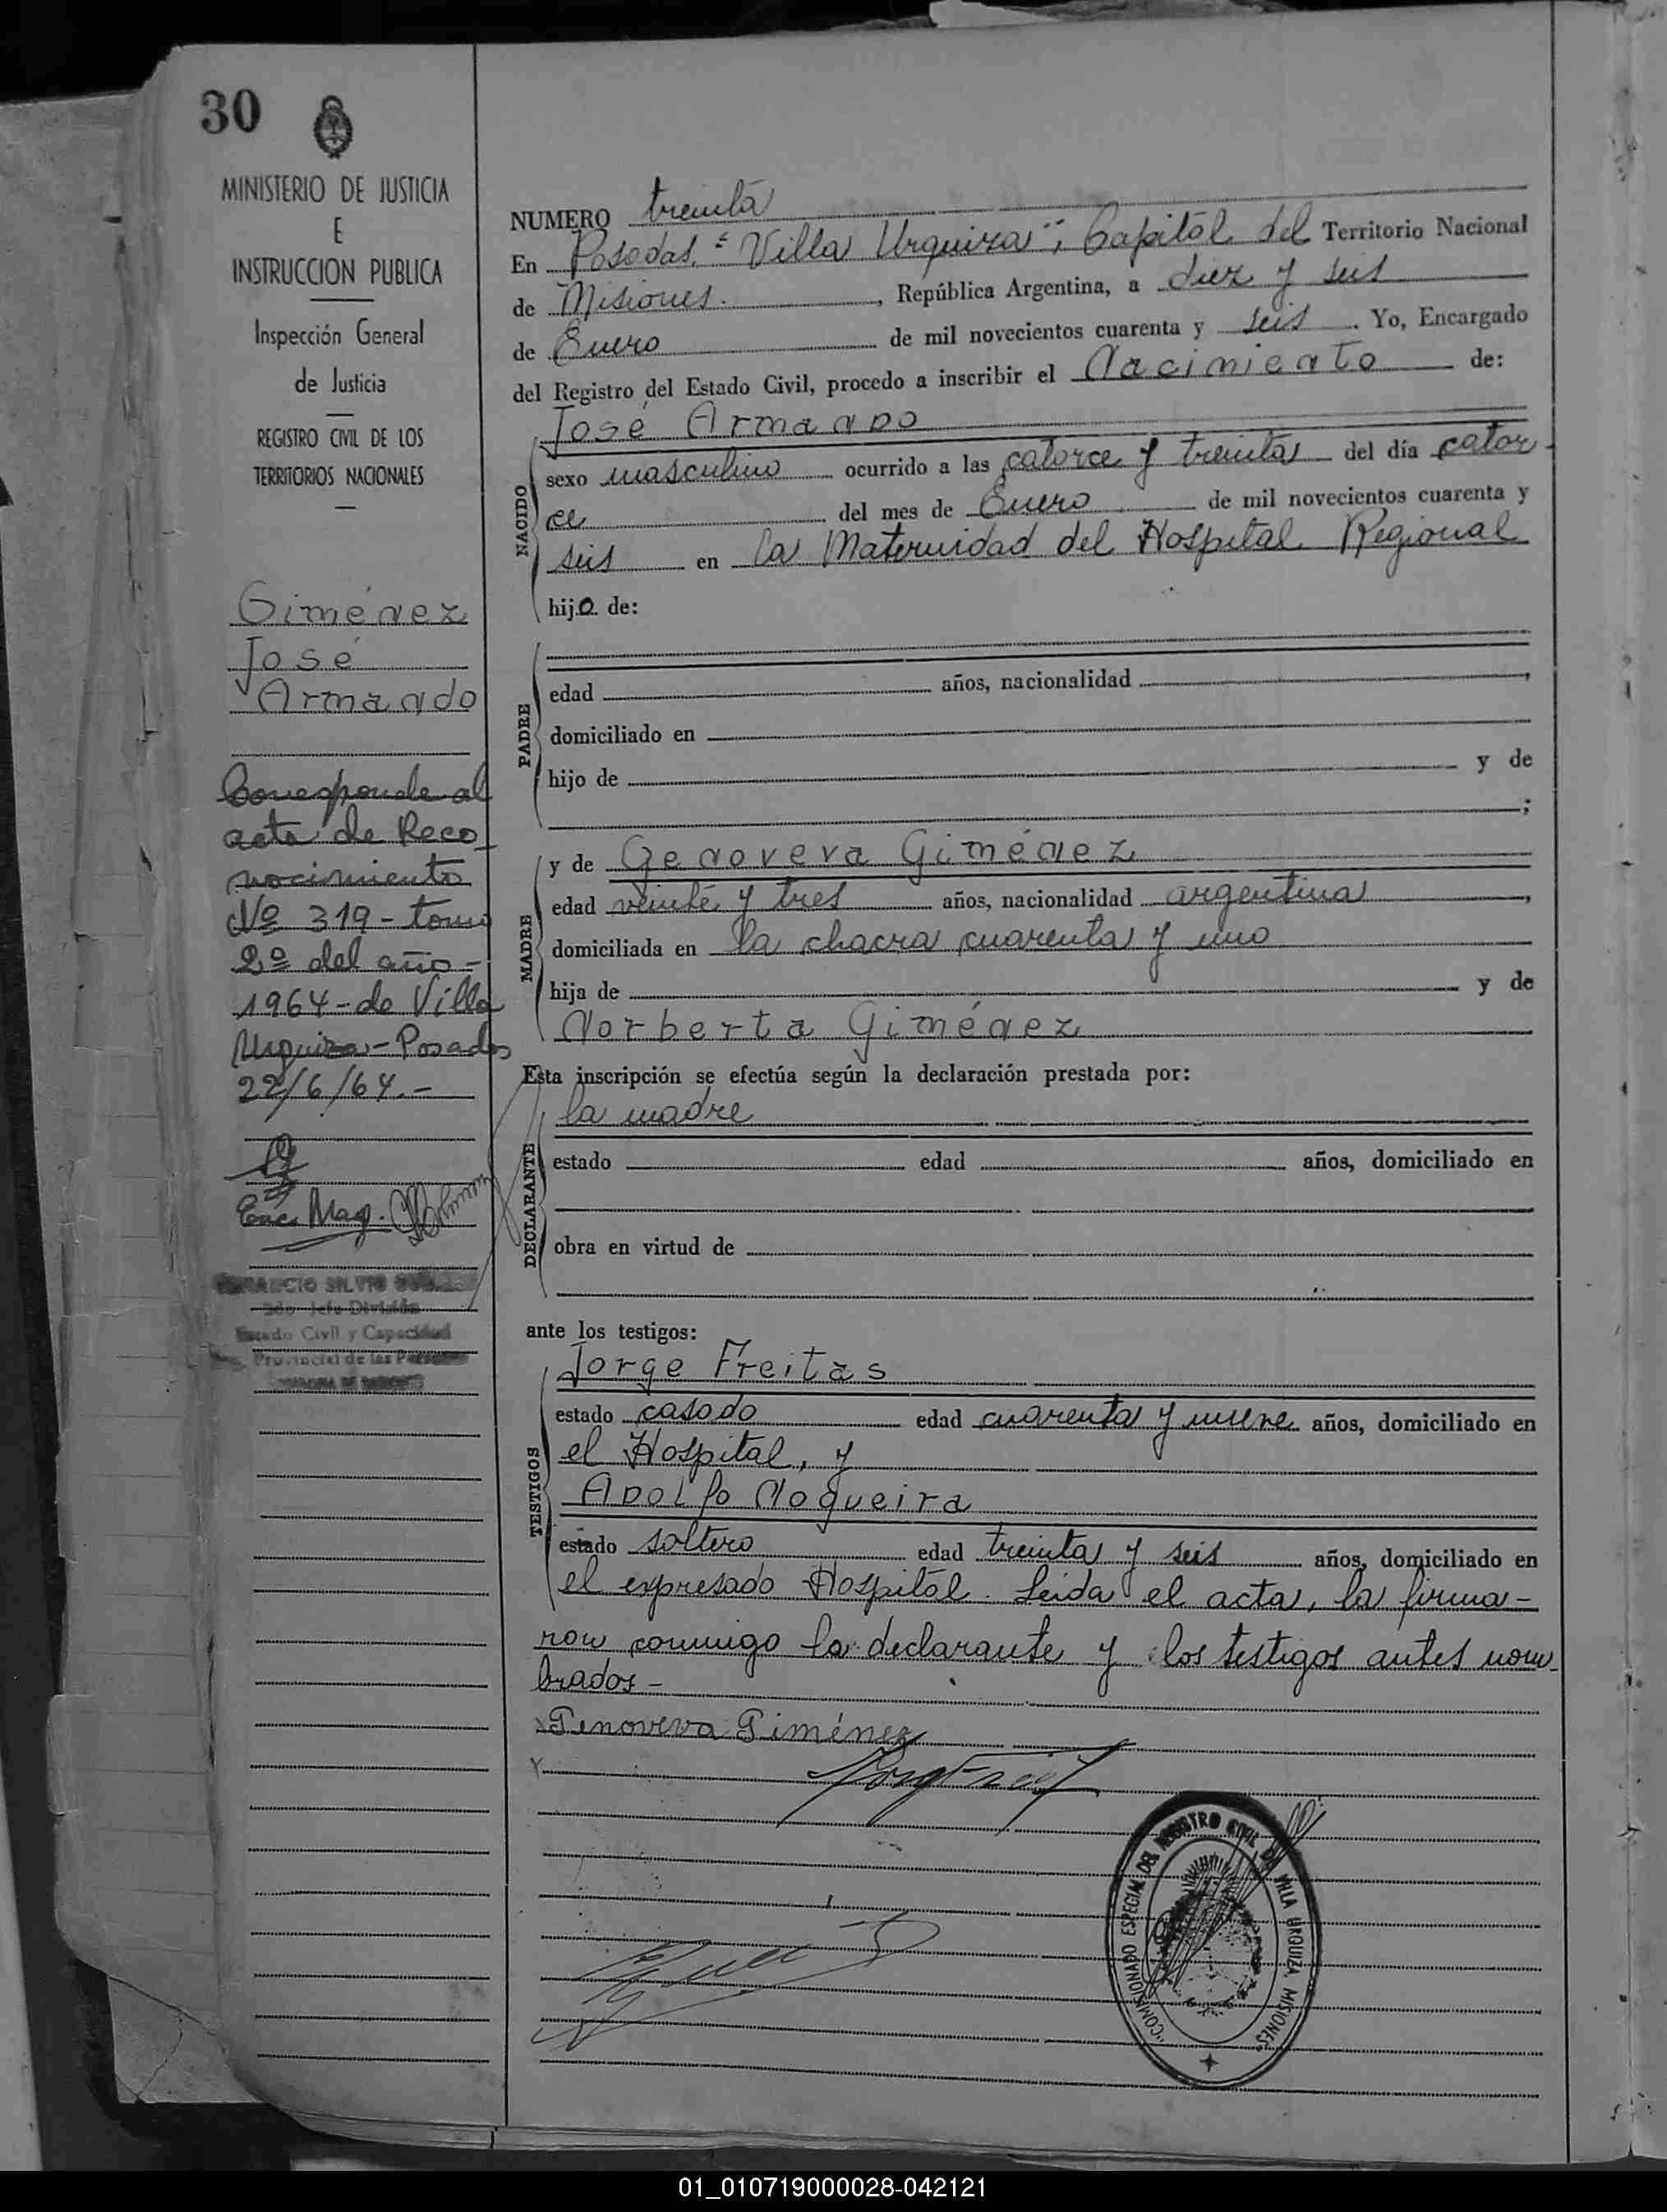 30
MINISTERIO DE JUSTICIA
E
INSTRUCCION PUBLICA
Inspección General
de Justicia
REGISTRO CIVIL DE LOS
TERRITORIOS NACIONALES
Giménez
José
Armando
Corresponde al
acta de Reco
nocimiento
Nº 319 - tomo
2º del año -
1964 - de Villa
Urquiza - Posadas
22/6/64.-
Enc. Mag.
SILVIO
Jefe División
Estado Civil y Capacidad
Provincial de las Personas
NUMERO treinta
En Posadas "Villa Urquiza", Capital del Territorio Nacional
de Misiones. , República Argentina, a diez y seis
de Enero de mil novecientos cuarenta y seis . Yo, Encargado
del Registro del Estado Civil, procedo a inscribir el Nacimiento de:
NACIDO
José Armando
sexo masculino ocurrido a las catorce y treinta del día cator-
ce del mes de Enero de mil novecientos cuarenta y
seis en la Maternidad del Hospital Regional
hijo de:
PADRE
edad años, nacionalidad ,
domiciliado en
hijo de y de
;
MADRE
y de Genoveva Giménez
edad veinte y tres años, nacionalidad argentina ,
domiciliada en la chacra cuarenta y uno
hija de y de
Norberta Giménez
Esta inscripción se efectúa según la declaración prestada por:
DECLARANTE
la madre
estado edad años, domiciliado en
obra en virtud de
ante los testigos:
TESTIGOS
Jorge Freitas
estado casado edad cuarenta y nueve años, domiciliado en
el Hospital, y
Adolfo Nogueira
estado soltero edad treinta y seis años, domiciliado en
el expresado Hospital. Leida el acta, la firma-
ron conmigo la declarante y los testigos antes nom-
brados -
Genoveva Giménez
"COMISIONADO ESPECIAL DEL REGISTRO CIVIL DE VILLA URQUIZA, MISIONES"
01_010719000028-042121